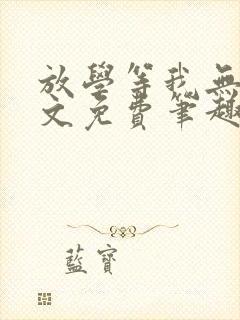 放學等我無
文免費筆趣
藍寶